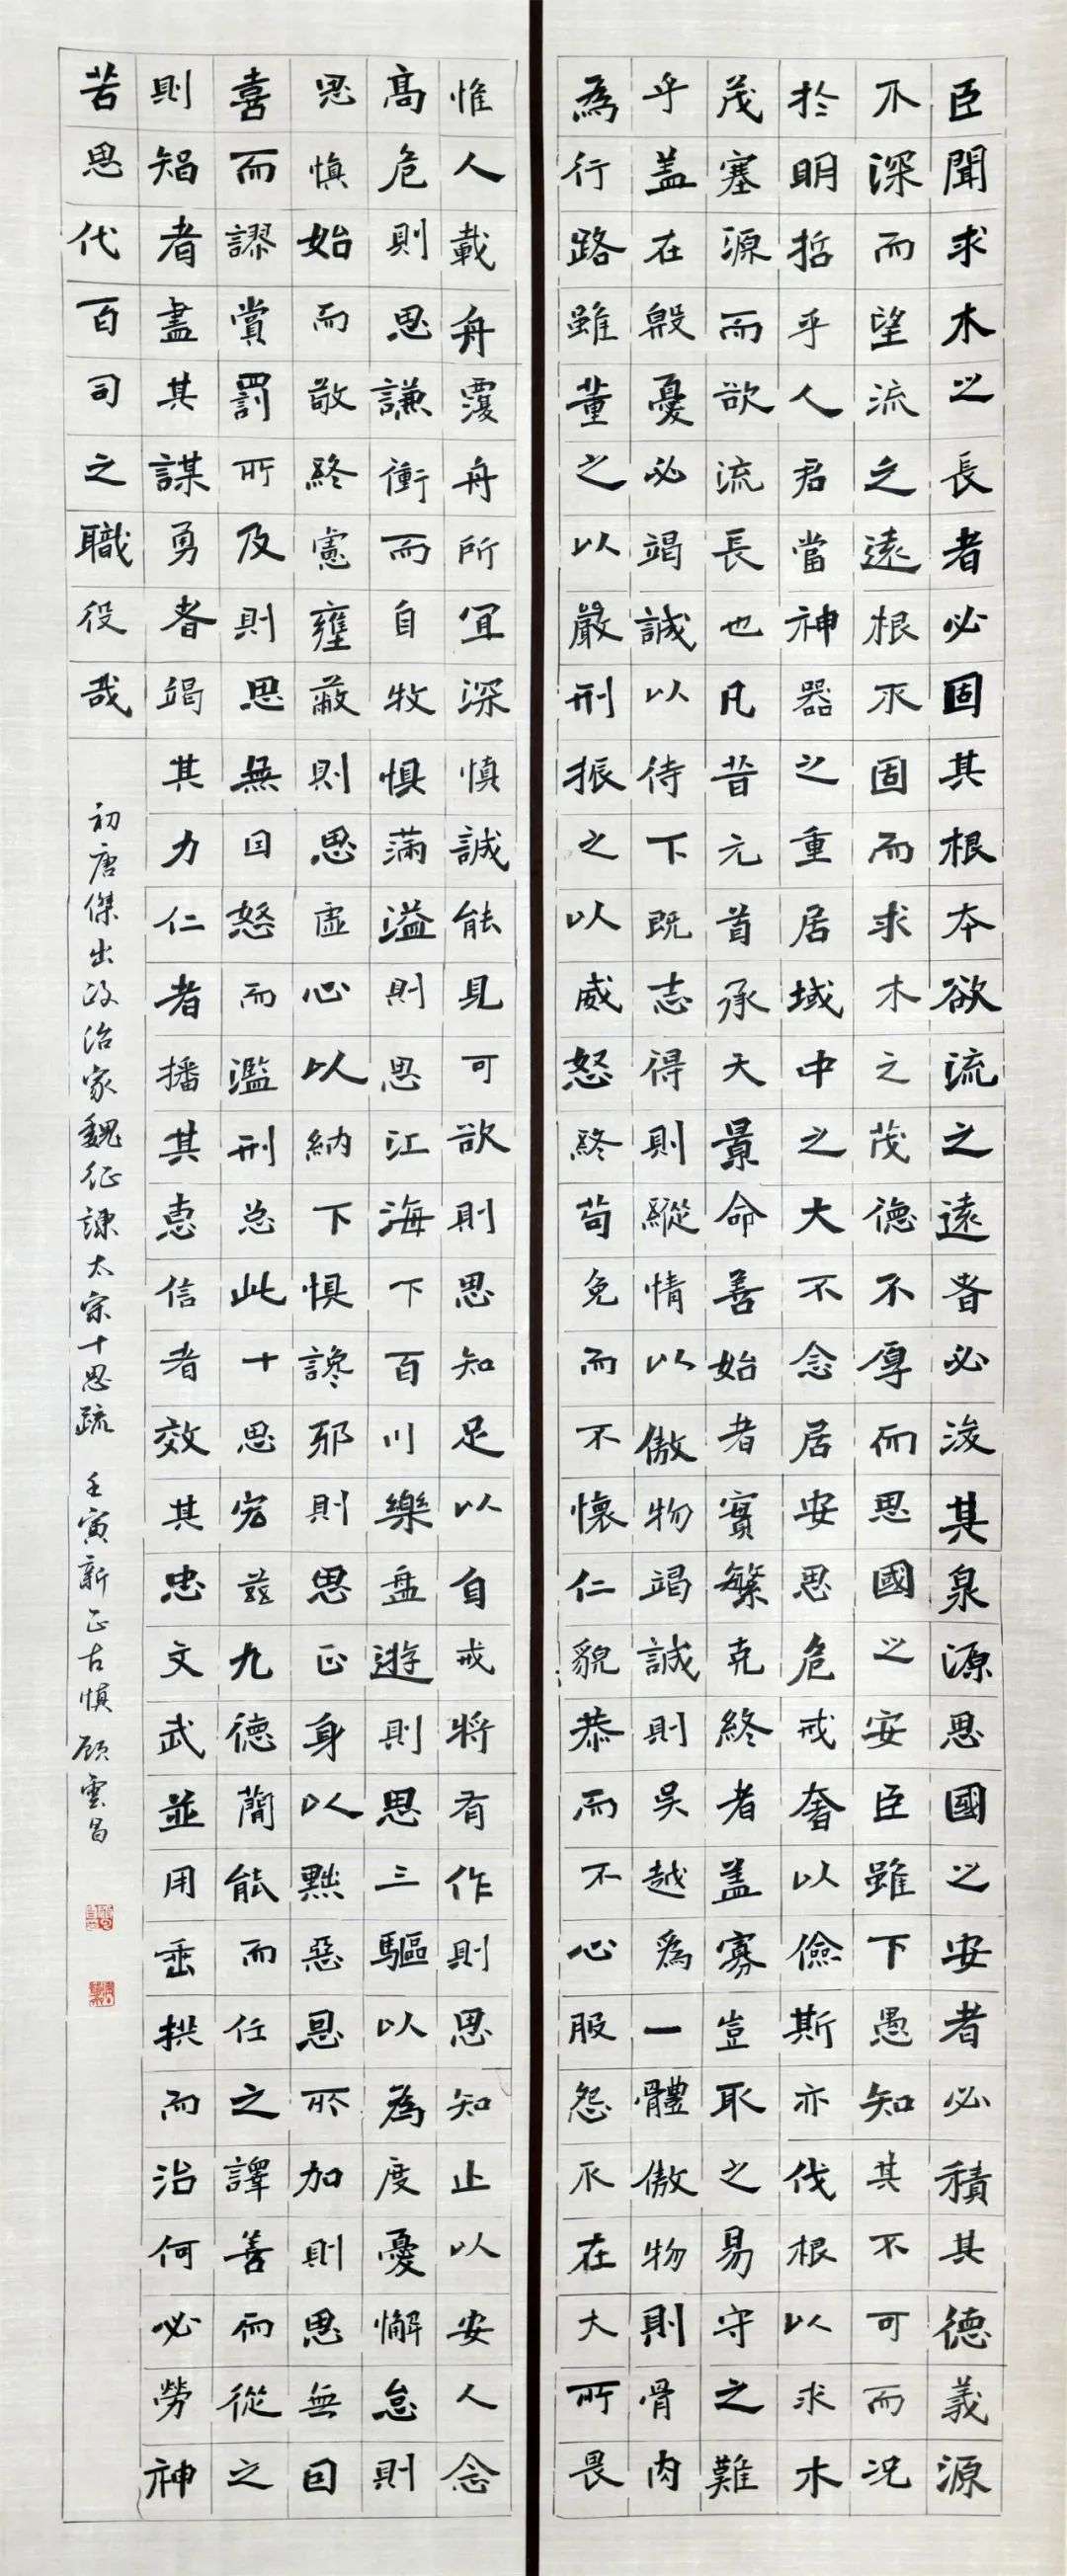 臣聞求木之長者必固其根本欲流之遠者必浚其泉源思國之安者必積其德義源
不深而望流之遠根不固而求木之茂德不厚而思國之安臣雖下愚知其不可而況
於明哲乎人君當神器之重居域中之大不念居安思危戒奢以儉斯亦伐根以求木
茂塞源而欲流長也凡昔元首承天景命善始者實繁克終者盖寡豈取之易守之難
乎盖在殷憂必竭誠以待下既志得則縱情以傲物竭誠則吴越為一體傲物則骨肉
為行路雖董之以嚴刑振之以威怒終苟免而不懷仁貌恭而不心服怨不在大所畏
惟人載舟覆舟所宜深慎誠能見可欲則思知足以自戒將有作則思知止以安人念
高危則思謙衝而自牧懼滿溢則思江海下百川樂盘遊則思三驅以為度憂懈怠則
思慎始而敬終憲壅蔽則思虛心以納下懼讒邪則思正身以黜惡恩所加則思無因
喜而謬賞罰所及則思無因怒而濫刑总此十思宏茲九德簡能而任之譯善而從之
則智者盡其謀勇者竭其力仁者播其惠信者效其忠文武並用垂拱而治何必勞神
苦思代百司之職役哉
初唐傑出政治家魏征諫太宗十思疏 壬寅新正古慎顧雲昌